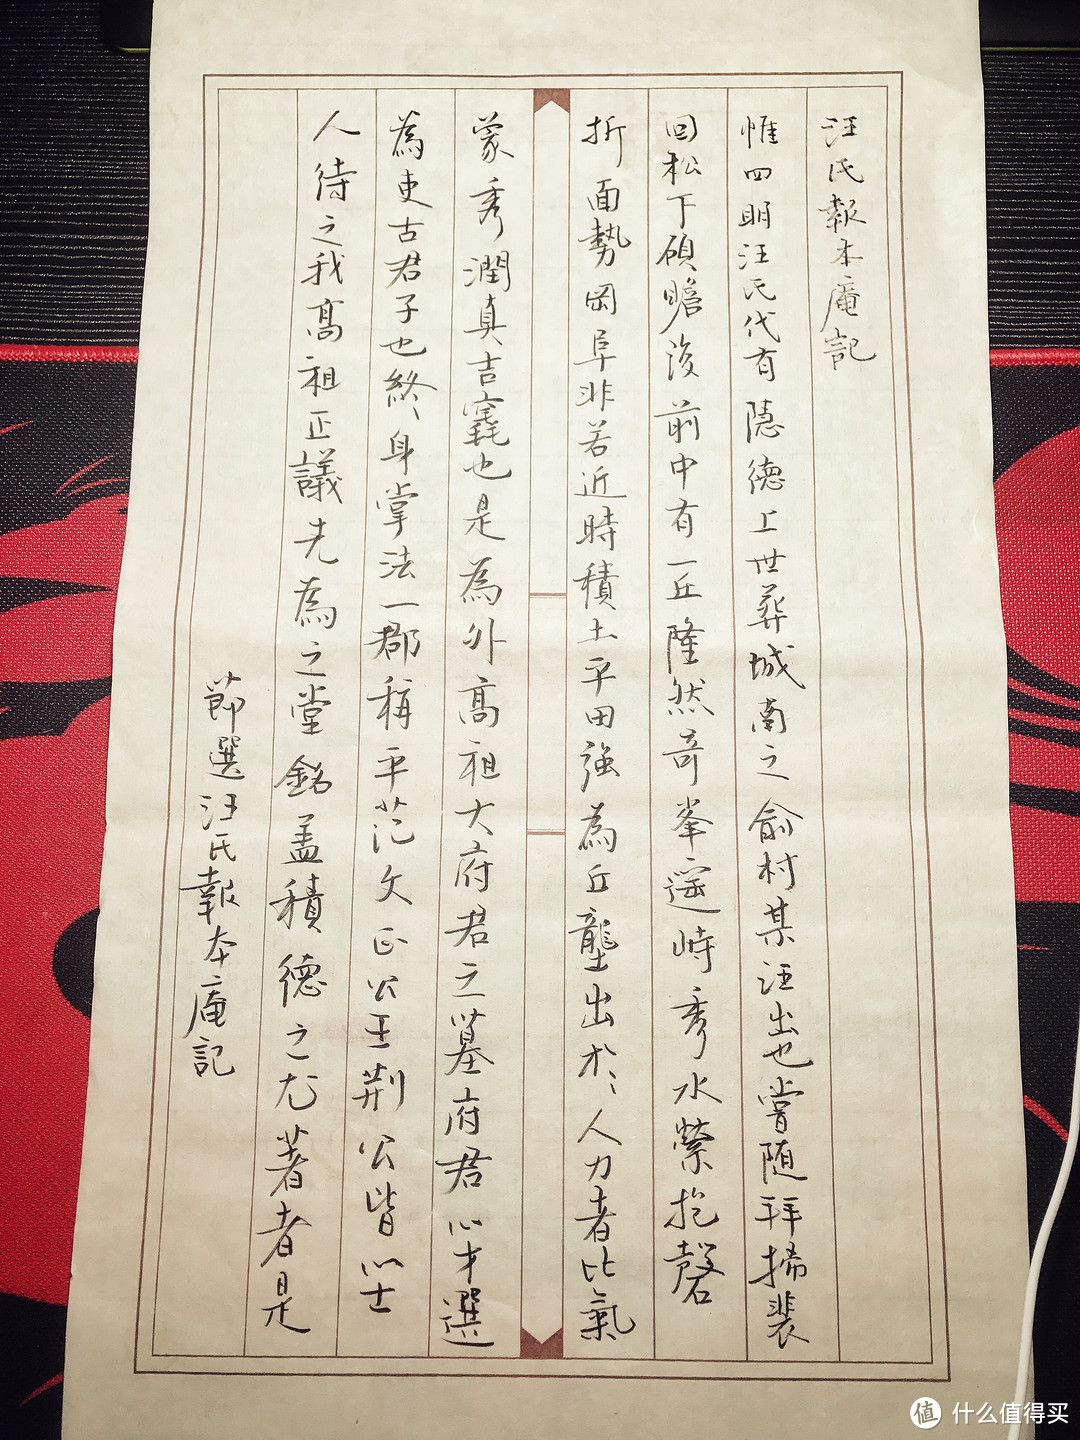 汪氏報本庵記
惟四明汪氏代有隱德上世葬城南之俞村某汪出也嘗随拜掃裴
回松下碩瞻後前中有一丘隆然奇峯遥峙秀水縈抱磬
折面勢岡阜非若近時積土平田強為丘壟出於人力者比氣
象秀潤真吉竁也是為外高祖大府君之墓府君以才選
為吏古君子也終身掌法一郡稱平范文正公王荆公皆以士
人待之我高祖正議先為之堂銘盖積德之尤著者是
節選汪氏報本庵記
值 什么值得买